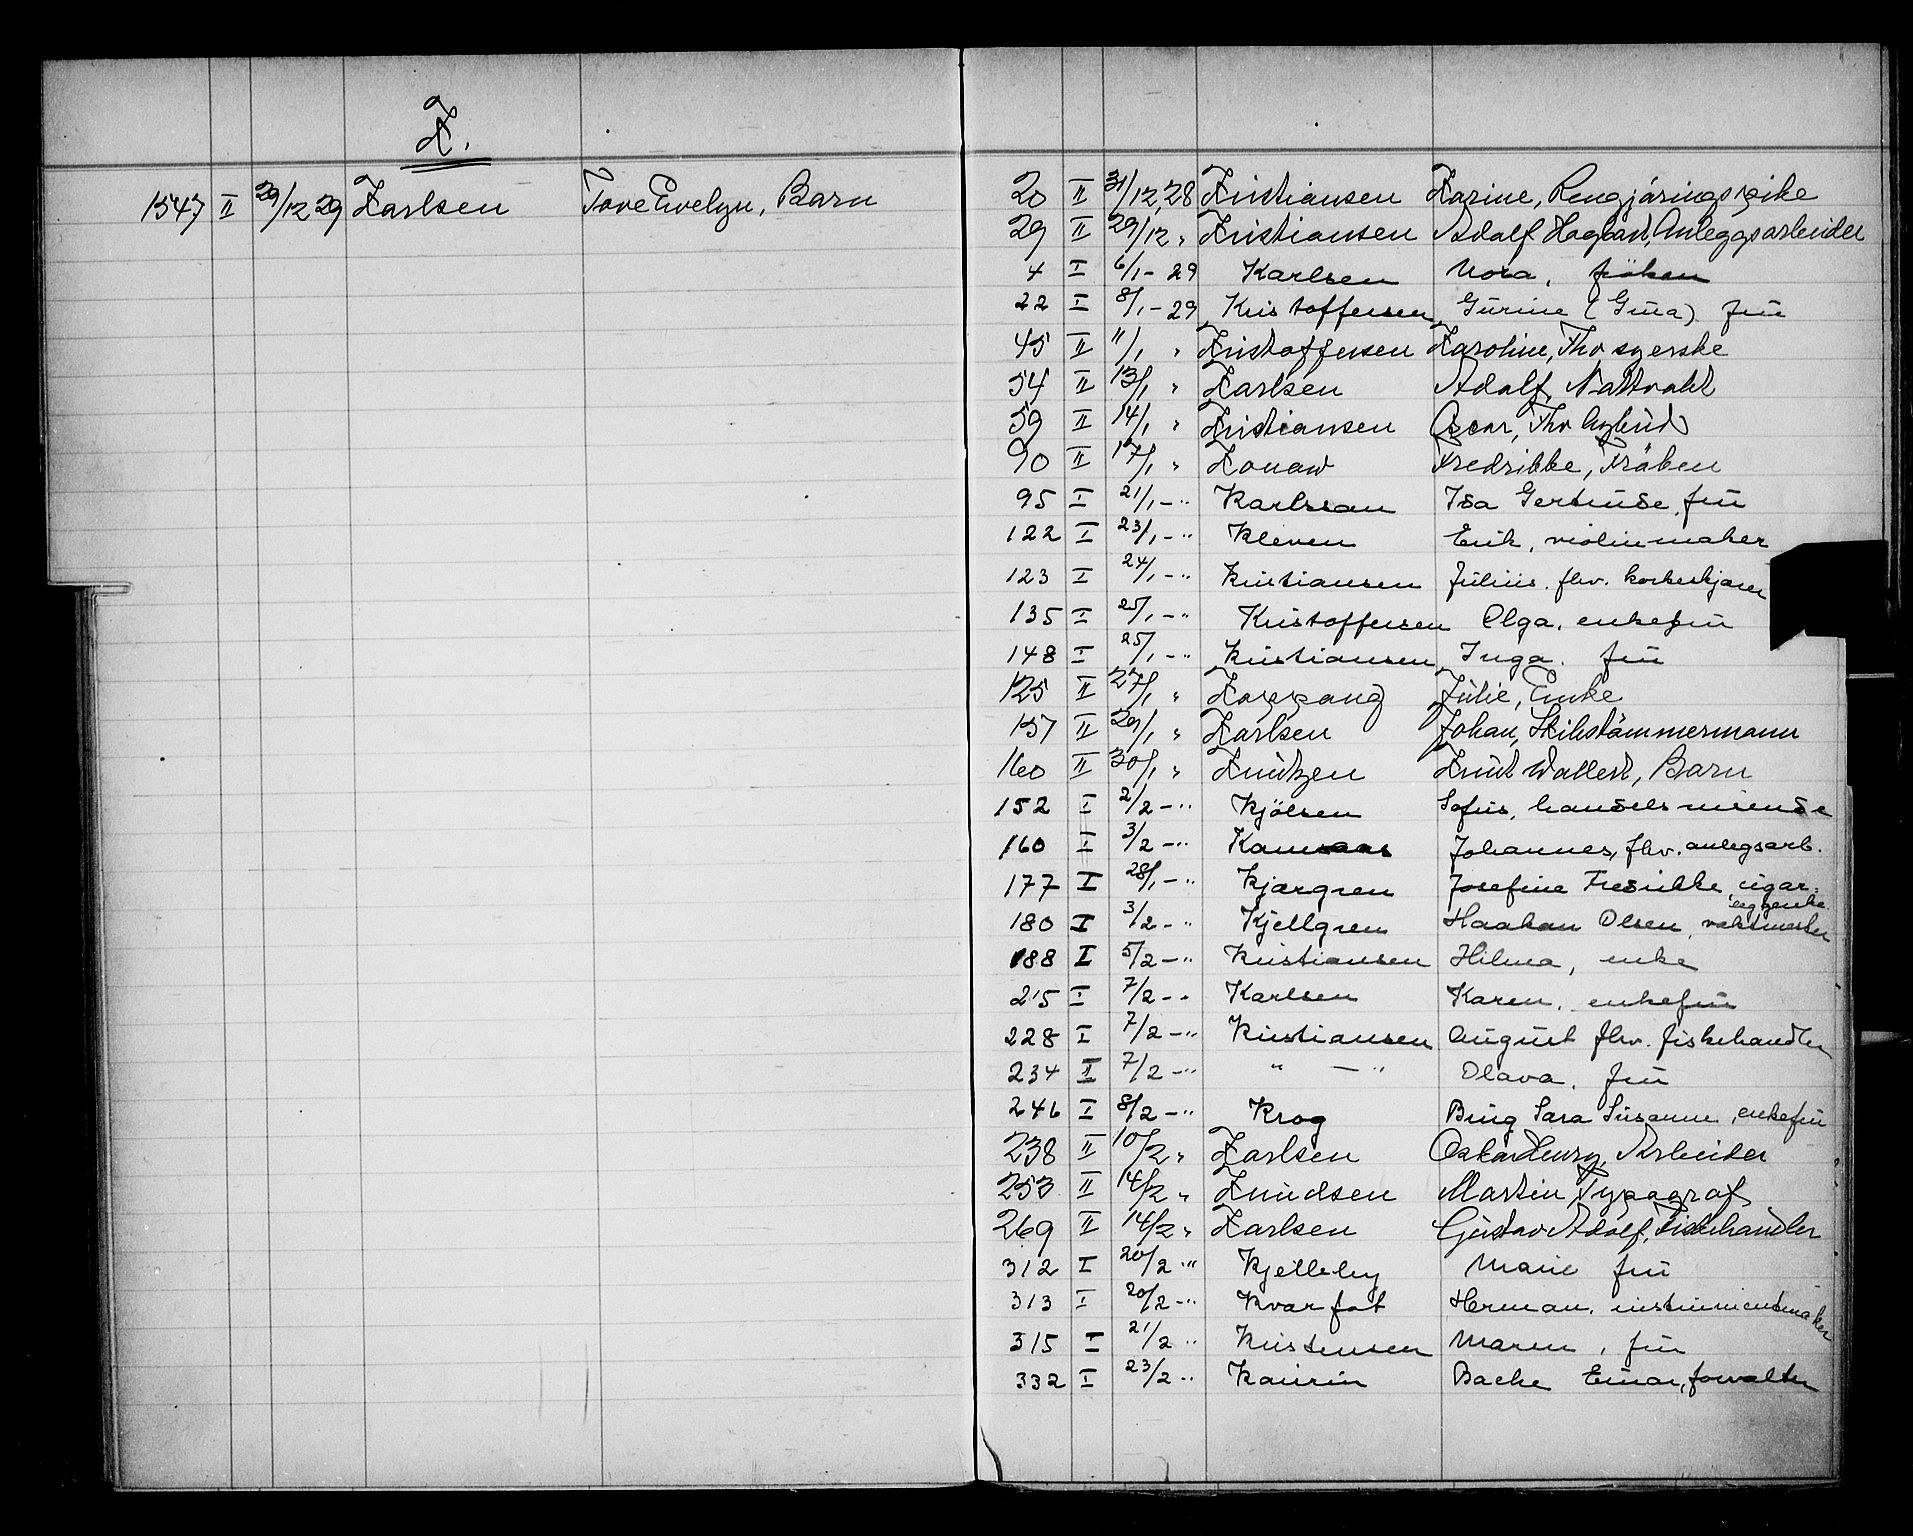 K.
1547 II 29/12 29 Karlsen Tove Evelyn, Barn
20 II 31/12, 28 Kristiansen Karine, Rengjöringspike
29 II 29/12 " Kristiansen Adolf Hagbart, Anleggsarbeider
4 I 6/1 - 29 Karlsen Nora, fröken
22 I 8/1 - 29 Kristoffersen Gurine (Gina) fru
45 II 11/1 " Kristoffersen Karoline, Fhv syerske
54 II 13/1 " Karlsen Adolf, Nattvakt
59 II 14/1 " Kristiansen Oscar, Fhv
90 II 17/1 " Konow Fredrikke, Fröken
95 I 21/1 - " Karlsson Isa Gertrude, fru
122 I 23/1 - " Kleven Erik, violinmaker
123 I 24/1 - " Kristiansen Julius, fhv. korkeskjærer
135 I 25/1 - " Kristoffersen Olga, enkefru
148 I 25/1 - " Kristiansen Inga, fru
125 II 27/1 " Koppang Julie, Enke
157 II 29/1 " Karlsen Johan, Skibstömmermann
160 II 30/1 " Knutzen Knut Wallert, Barn
152 I 2/2 - " Kjölsen Sofus, handelsreisende
160 I 3/2 - " Kamsaas Johannes, fhv. anlegsarb.
177 I 28/1 - " Kjærgren Josefine Fredrikke, cigar-
180 I 3/2 - " Kjellgren Haakon Olsen, vaktmester
188 I 5/2 - " Kristiansen Hilma, enke
215 I 7/2 - " Karlsen Karen, enkefru
228 I 7/2 - " Kristiansen August fhv. fiskehandler
234 II 7/2 - " " — " Olava, fru
246 I 8/2 - " Krog Bing Sara Susanne, enkefru
238 II 10/2 " Karlsen Oskar Henry, Arbeider
253 II 14/2 " Knudsen Martin Typograf
269 II 14/2 " Karlsen Gustav Adolf, Fiskehandler
312 I 20/2 " Kjelleby Marie fru
313 I 20/2 - " Kvarfot Herman, instrumentmaker
315 I 21/2 " Kristensen Maren, fru
332 I 23/2 " Kaurin Backe Einar, forvalter